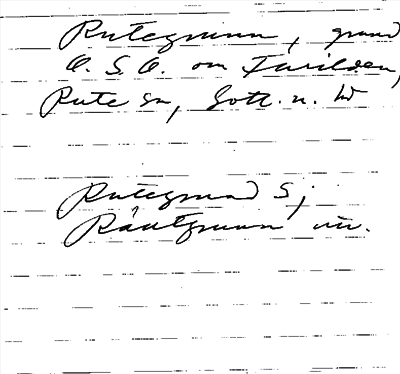 Rutegrunn, grund
O.S.O. om Furilden,
Rute sn, Gotl. n. hd
Rutegrund S;
Räutgrunn un.